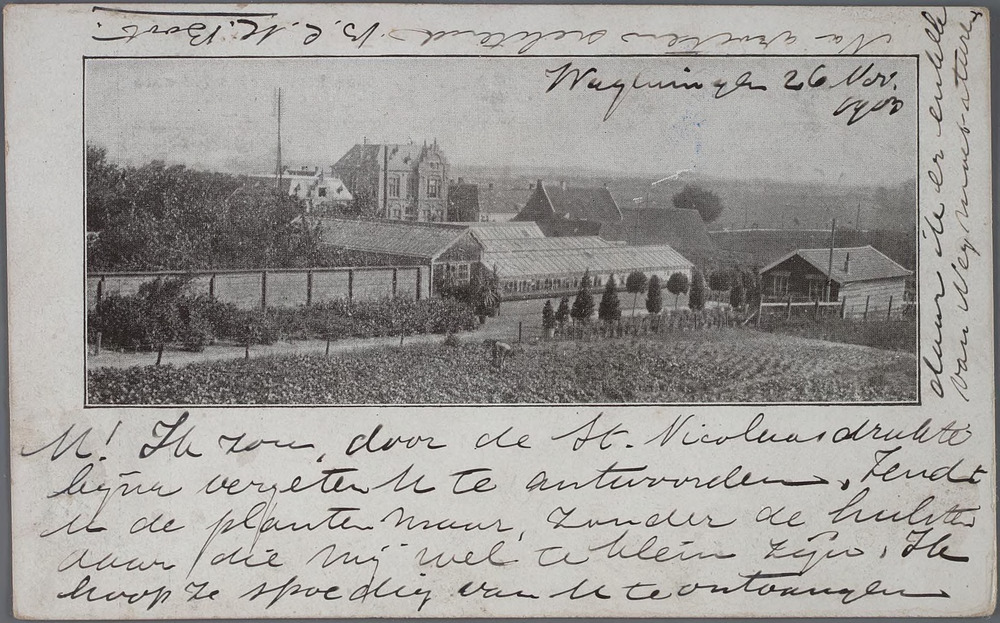 Wageningen 26 Nov.
1903
M! Ik zou, door de St. Nicolaasdrukte
bijna vergeten U te antwoorden. Zendt
U de planten maar, zonder de hulsten
daar die mij wel te klein zijn. Ik
hoop ze spoedig van U te ontvangen
daar ik er enkele
van
Na groeten
B. C. M.